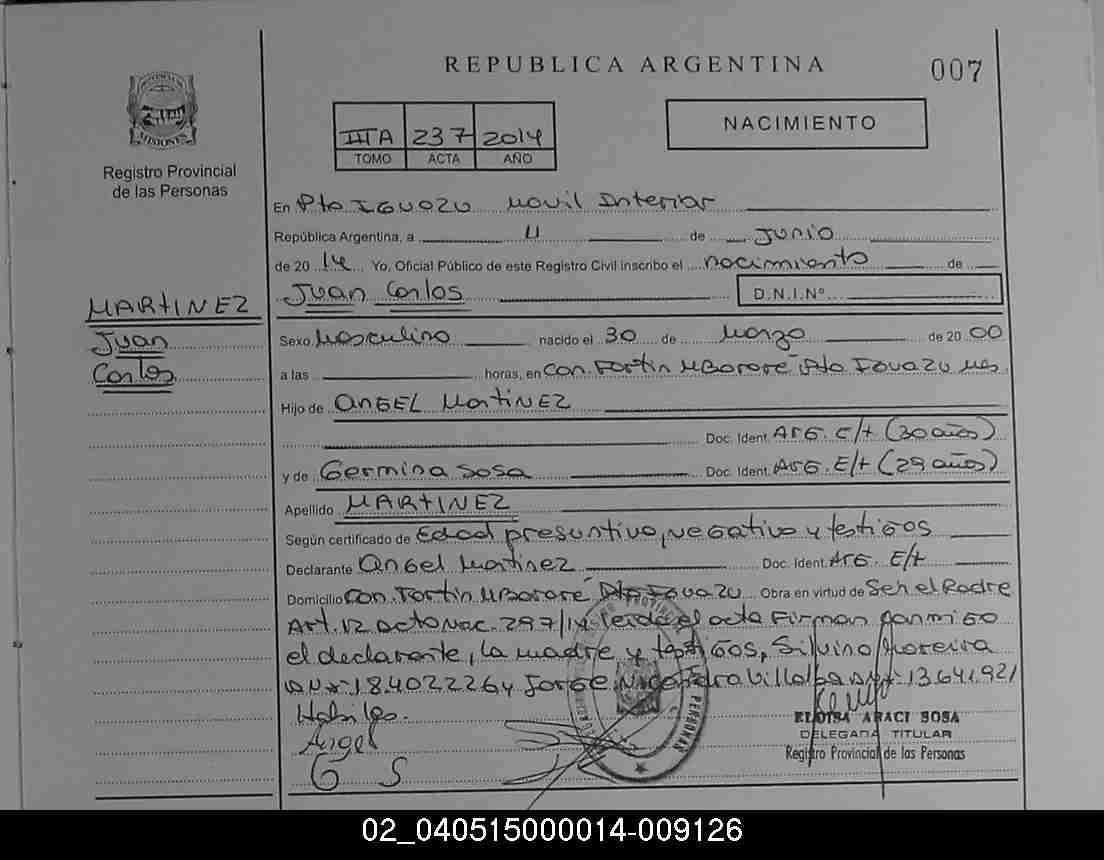 REPUBLICA ARGENTINA
007
NACIMIENTO
IIIA 237 2014
TOMO ACTA AÑO
PROVINCIA DE
MISIONES
Registro Provincial
de las Personas
En Pto Iguazu Movil Interior
República Argentina, a 11 de Junio
de 20 14 Yo, Oficial Público de este Registro Civil inscribo el nacimiento de
Juan Carlos D.N.I.Nº
MARTINEZ
Juan
Carlos
Sexo Masculino nacido el 30 de Marzo de 20 00
a las horas, en Com. Fortin MBororé Pto Iguazu Mns
Hijo de ANGEL MartiNEZ
Doc. Ident. ARG. E/t (30 años)
y de Germina Sosa Doc. Ident. ARG. E/t (29 años)
Apellido MARTINEZ
Según certificado de Edad presuntiva, negativo y testigos
Declarante Angel Martinez Doc. Ident. ARG. E/t
Domicilio Com. Fortin MBororé Pto Iguazu Obra en virtud de Ser el Padre
Art. 12 acto Nac. 297/14 Leida el acta Firman conmigo
el declarante, la madre y testigos, Silvino Moreira
DNI: 18.402226 y Jorge Villalba DNI: 13.641.921
Habiles.
Angel
G S
ELOISA ARACI SOSA
DELEGADA TITULAR
Registro Provincial de las Personas
02_040515000014-009126